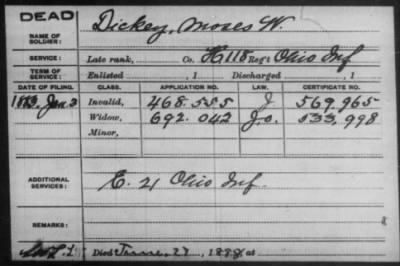 DEAD
NAME OF SOLDIER: Dickey, Moses W.
SERVICE: Late rank, Co. H 118 Reg't Ohio Inf
TERM OF SERVICE: Enlisted , 1 Discharged , 1
DATE OF FILING. CLASS. APPLICATION NO. LAW. CERTIFICATE NO.
Jan 3 Invalid, 468.555 J 569.965
Widow, 692.042 J.o. 533,998
Minor,
ADDITIONAL SERVICES: E. 21 Ohio Inf.
REMARKS:
Died June 27, 1898, at